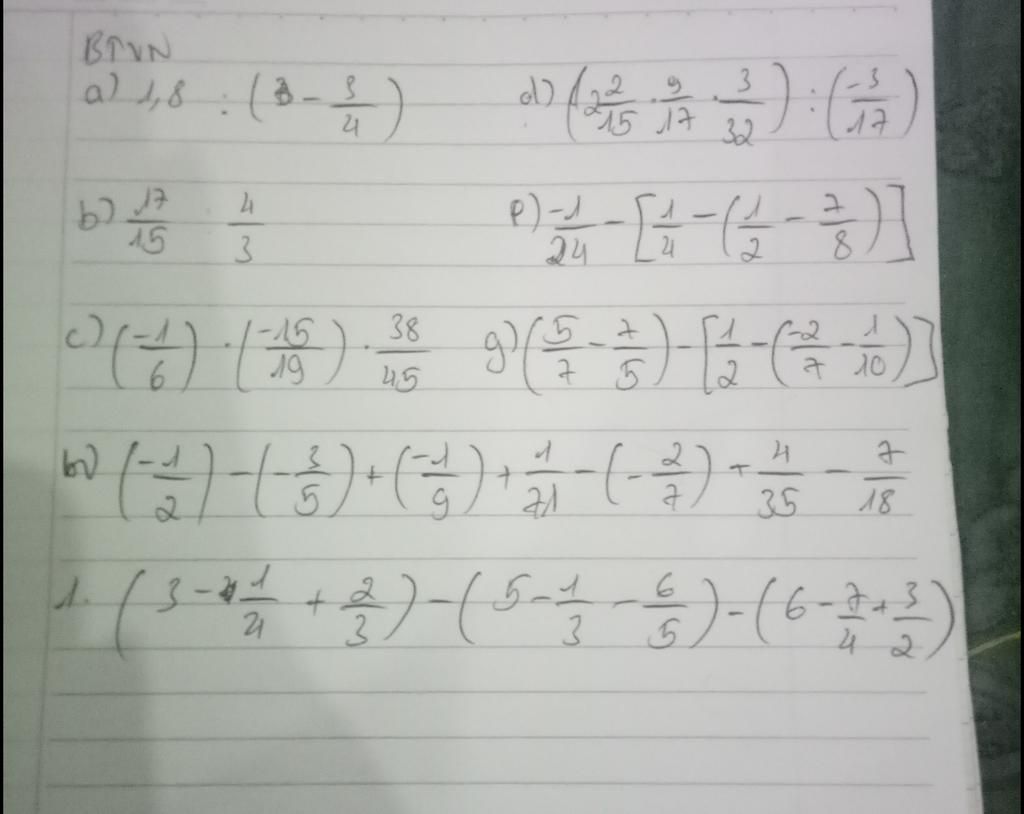 BTVN
a) 1,8 : (3 - 3/4) d) (2 2/15 . 9/17 . 3/32) : (-3/17)
b) 17/15 4/3 e) -1/24 - [1/4 - (1/2 - 7/8)]
c) (-1/6) . (-15/19) . 38/45 g) (5/7 - 7/5) - [1/2 - (-2/7 - 1/10)]
(-1/2) - (-3/5) + (-1/9) + 1/71 - (-2/7) + 4/35 - 7/18
1. (3 - 1/4 + 2/3) - (5 - 1/3 - 6/5) - (6 - 7/4 + 3/2)